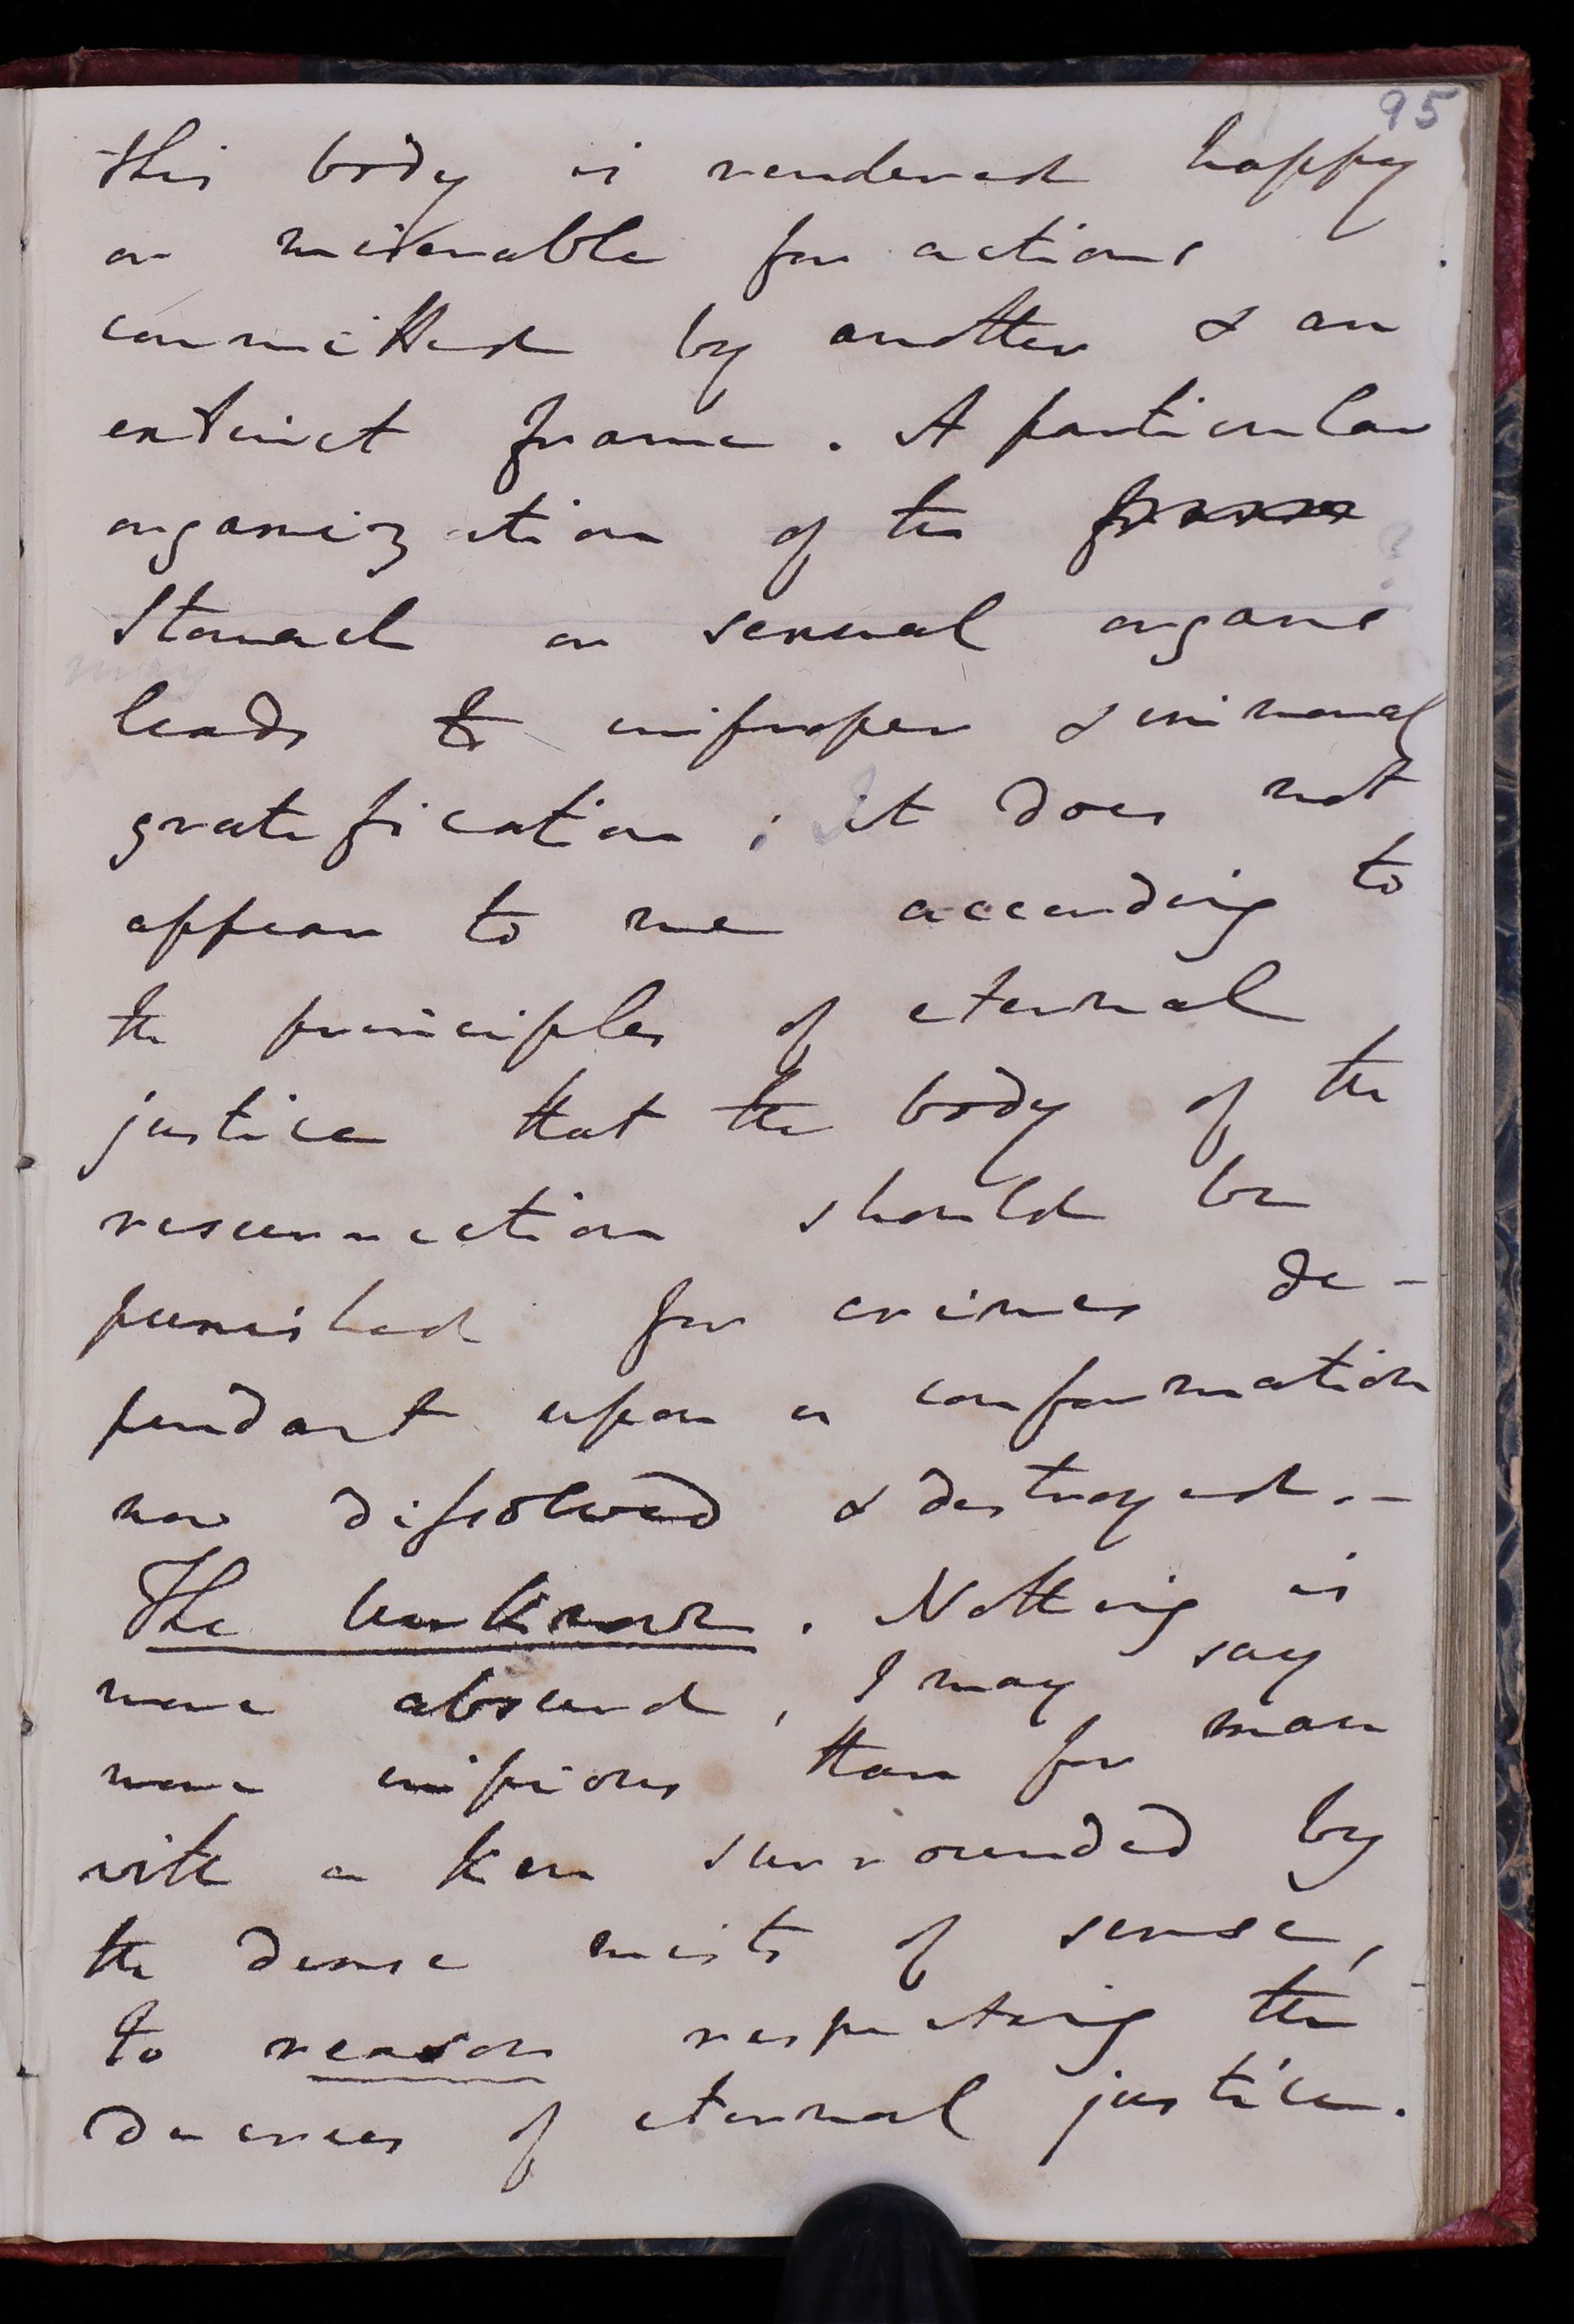 95
this body is rendered happy
or miserable for actions
committed by another & an
extinct frame. A particular
organization of the frame
Stomach or sexual organs
may
leads to improper & immoral
gratification; it does not
appear to me according to
the principles of eternal
justice that the body of the
resurrection should be
punished for crimes de-
pendant upon a conformation
now dissolved & destroyed.–
The Unknown. Nothing is
more absurd, I may say
more impious than for man
with a ken surrounded by
the dense mists of sense,
to reason respecting the
decrees of eternal justice.